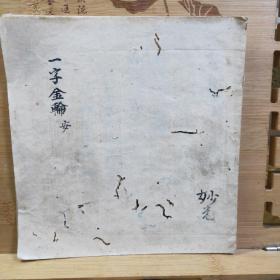 一字金輪 安
妙光